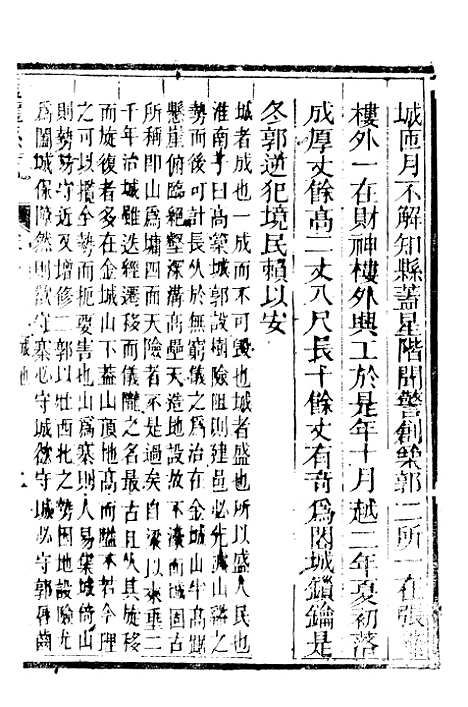 城匝月不解知縣蓋星階聞警創築郭二所一在張
樓外一在財神樓外興工於是年十月越二年夏初落
成厚丈餘高二丈八尺長十餘丈有奇爲閤城鎖鑰是
冬郭逆犯境民賴以安
城者成也一成而不可毀也城者盛也所以盛人民也
淮南子曰高築城郭設樹險阻則建邑必先講
勢而後可計長久於無窮儀之爲治在金城山牛高踞
懸崖俯臨絕壑深溝高壘天造地設故不湊而誠固古
所稱即山爲墉四面天險者是過矣自梁以來垂二
千年治城雖迭經遷移而儀隴之名最古且久其旋移
而旋復者多在金城山下葢山頂地高而隘不若令理
之可以攬全勢而扼要害也山爲寨則人易集城倚山
則勢易守近又增修二郭以壯西北之勢因地設險允
爲闔城保障然則欲守寨必守城欲守城必守郭脣齒